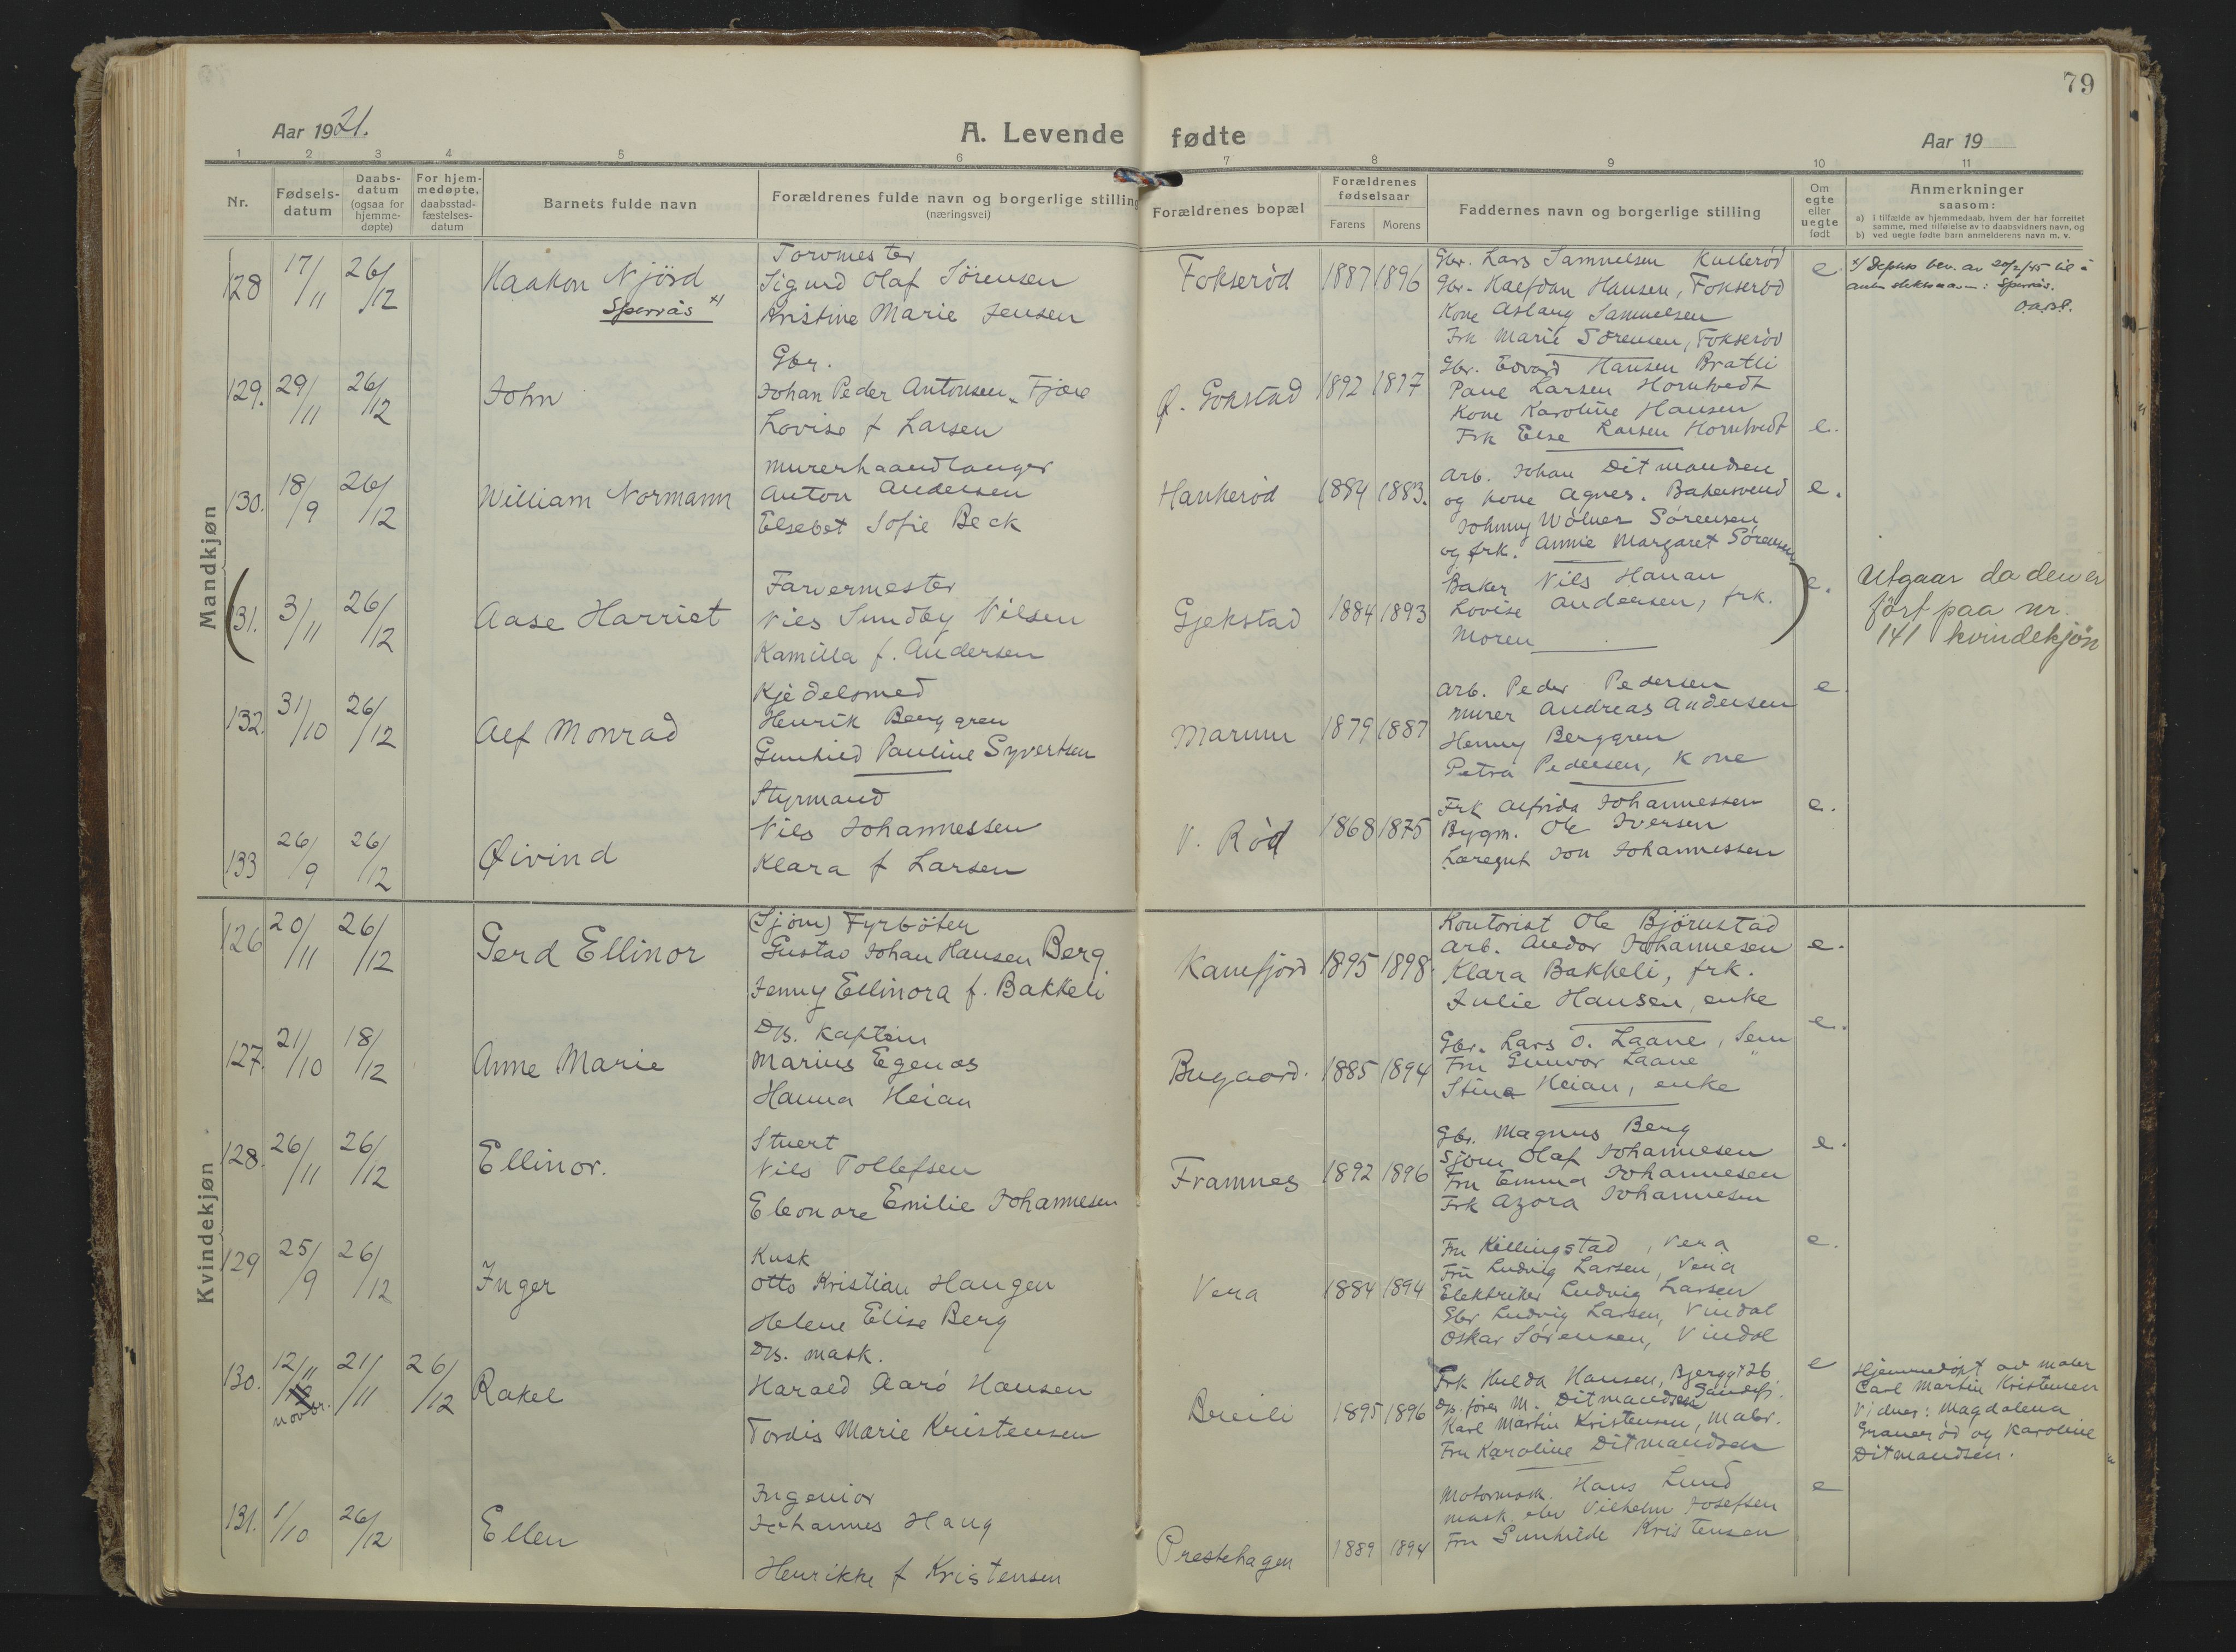 79
Aar 1921.
A. Levende fødte
Aar 19
1 2 3 4 5 6 7 8 9 10 11
Nr.
Fødsels-
datum
Daabs-
datum
(ogsaa for
hjemme-
døpte)
For hjem-
medøpte,
daabsstad-
fæstelses-
datum
Barnets fulde navn
Forældrenes fulde navn og borgerlige stilling
(næringsvei)
Forældrenes bopæl
Forældrenes
fødselsaar
Farens Morens
Faddernes navn og borgerlige stilling
Om
egte
eller
uegte
født
Anmerkninger
saasom:
a) i tilfælde av hjemmedaab, hvem der har forrettet
samme, med tilføielse av to daabsvidners navn, og
b) ved uegte fødte barn anmelderens navn m. v.
Mandkjøn
128 17/11 26/12
Haakon Njörd
Spervås x)
Torvmester
Sigurd Olaf Sörensen
Kristine Marie Jensen
Fokseröd 1887 1896
Gbr. Lars Samuelsen Kulleröd
Gbr. Halfdan Hansen, Fokseröd
Kone Aslaug Samuelsen
Frk Marie Sörensen, Fokseröd
e.
x) Depts bev. av 20/2/45 til å
anta slektsnavn: Spervås.
129. 29/11 26/12
John
Gbr.
Johan Peder Antonsen Fjære
Lovise f Larsen
Ø. Gokstad 1892 1877
Gbr. Edvard Hansen Bratli
Paul Larsen Horntvedt
Kone Karoline Hansen
Frk Else Larsen Horntvedt
e.
130. 18/9 26/12
William Normann
Murerhaandlanger
Anton Andersen
Elsebet Sofie Beck
Haukeröd 1884 1883.
Arb. Johan Ditmandsen
og kone Agnes. Bakersvend
Johnny Wölner Sörensen
og frk. Annie Margaret Sörensen
e.
131. 3/11 26/12
Aase Harriet
Farvermester
Nils Sundby Nilsen
Kamilla f. Andersen
Gjekstad 1884 1893
Baker Nils Hanan
Lovise Andersen, frk.
Moren
e.
Utgaar da den er
fört paa nr.
141 kvindekjön
132. 31/10 26/12
Alf Monrad
Kjedelsmed
Henrik Berggren
Gunhild Pauline Syvertsen
Marum 1879 1887
Arb. Peder Pedersen
Murer Andreas Andersen
Henny Berggren
Petra Pedersen, Kone
e.
133 26/9 26/12
Øivind
Styrmand
Nils Johannessen
Klara f Larsen
V. Röd 1868 1875
Frk Alfrida Johannessen
Bygm. Ole Iversen
Læregut Jon Johannessen
e.
Kvindekjøn
126 20/11 26/12
Gerd Ellinor
(Sjöm) Fyrböter
Gustav Johan Hansen Berg
Jenny Ellinora f. Bakkeli
Kamfjord 1895 1898.
Kontorist Ole Björnstad
Arb. Andor Johannesen
Klara Bakkeli, frk.
Julie Hansen, enke
e.
127. 21/10 18/12
Anne Marie
Ds. Kaptein
Marius Egenæs
Hanna Heian
Bugaard. 1885 1894
Gbr. Lars O. Laane, Sem
Fru Gunvor Laane "
Stina Heian, enke
e.
128. 26/11 26/12
Ellinor.
Stuert
Nils Tollefsen
Eleonore Emilie Johannesen
Framnes 1892 1896
Gbr. Magnus Berg
Sjöm Olaf Johannesen
Fru Emma Johannesen
Frk Azora Johannesen
e.
129 25/9 26/12
Inger
Kusk
Otto Kristian Haugen
Helene Elise Berg
Vera 1884 1894
Fru Killingstad, Vera
Fru Ludvig Larsen, Vera
Elektriker Ludvig Larsen
Gbr Ludvig Larsen, Vindal
Oskar Sörensen, Vindal
e.
130. 12/11 novbr. 21/11 26/12
Rakel
Ds. mask.
Harald Aarö Hansen
Tordis Marie Kristensen
Breili 1895 1896
Frk Hulda Hansen, Bjerggt 26
Sandefj.
Ds. förer M. Ditmandsen
Karl Martin Kristensen, maler.
Fru Karoline Ditmandsen
e
Hjemmedöpt av maler
Carl Martin Kristensen
Vidner: Magdalena
Graneröd og Karoline
Ditmandsen.
131. 1/10 26/12
Ellen
Ingeniör
Johannes Haug
Henrikke f Kristensen
Prestehagen 1889 1894
Motormask. Hans Lund
Mask. elev Vilhelm Josefsen
Fru Gunhilde Kristensen
e